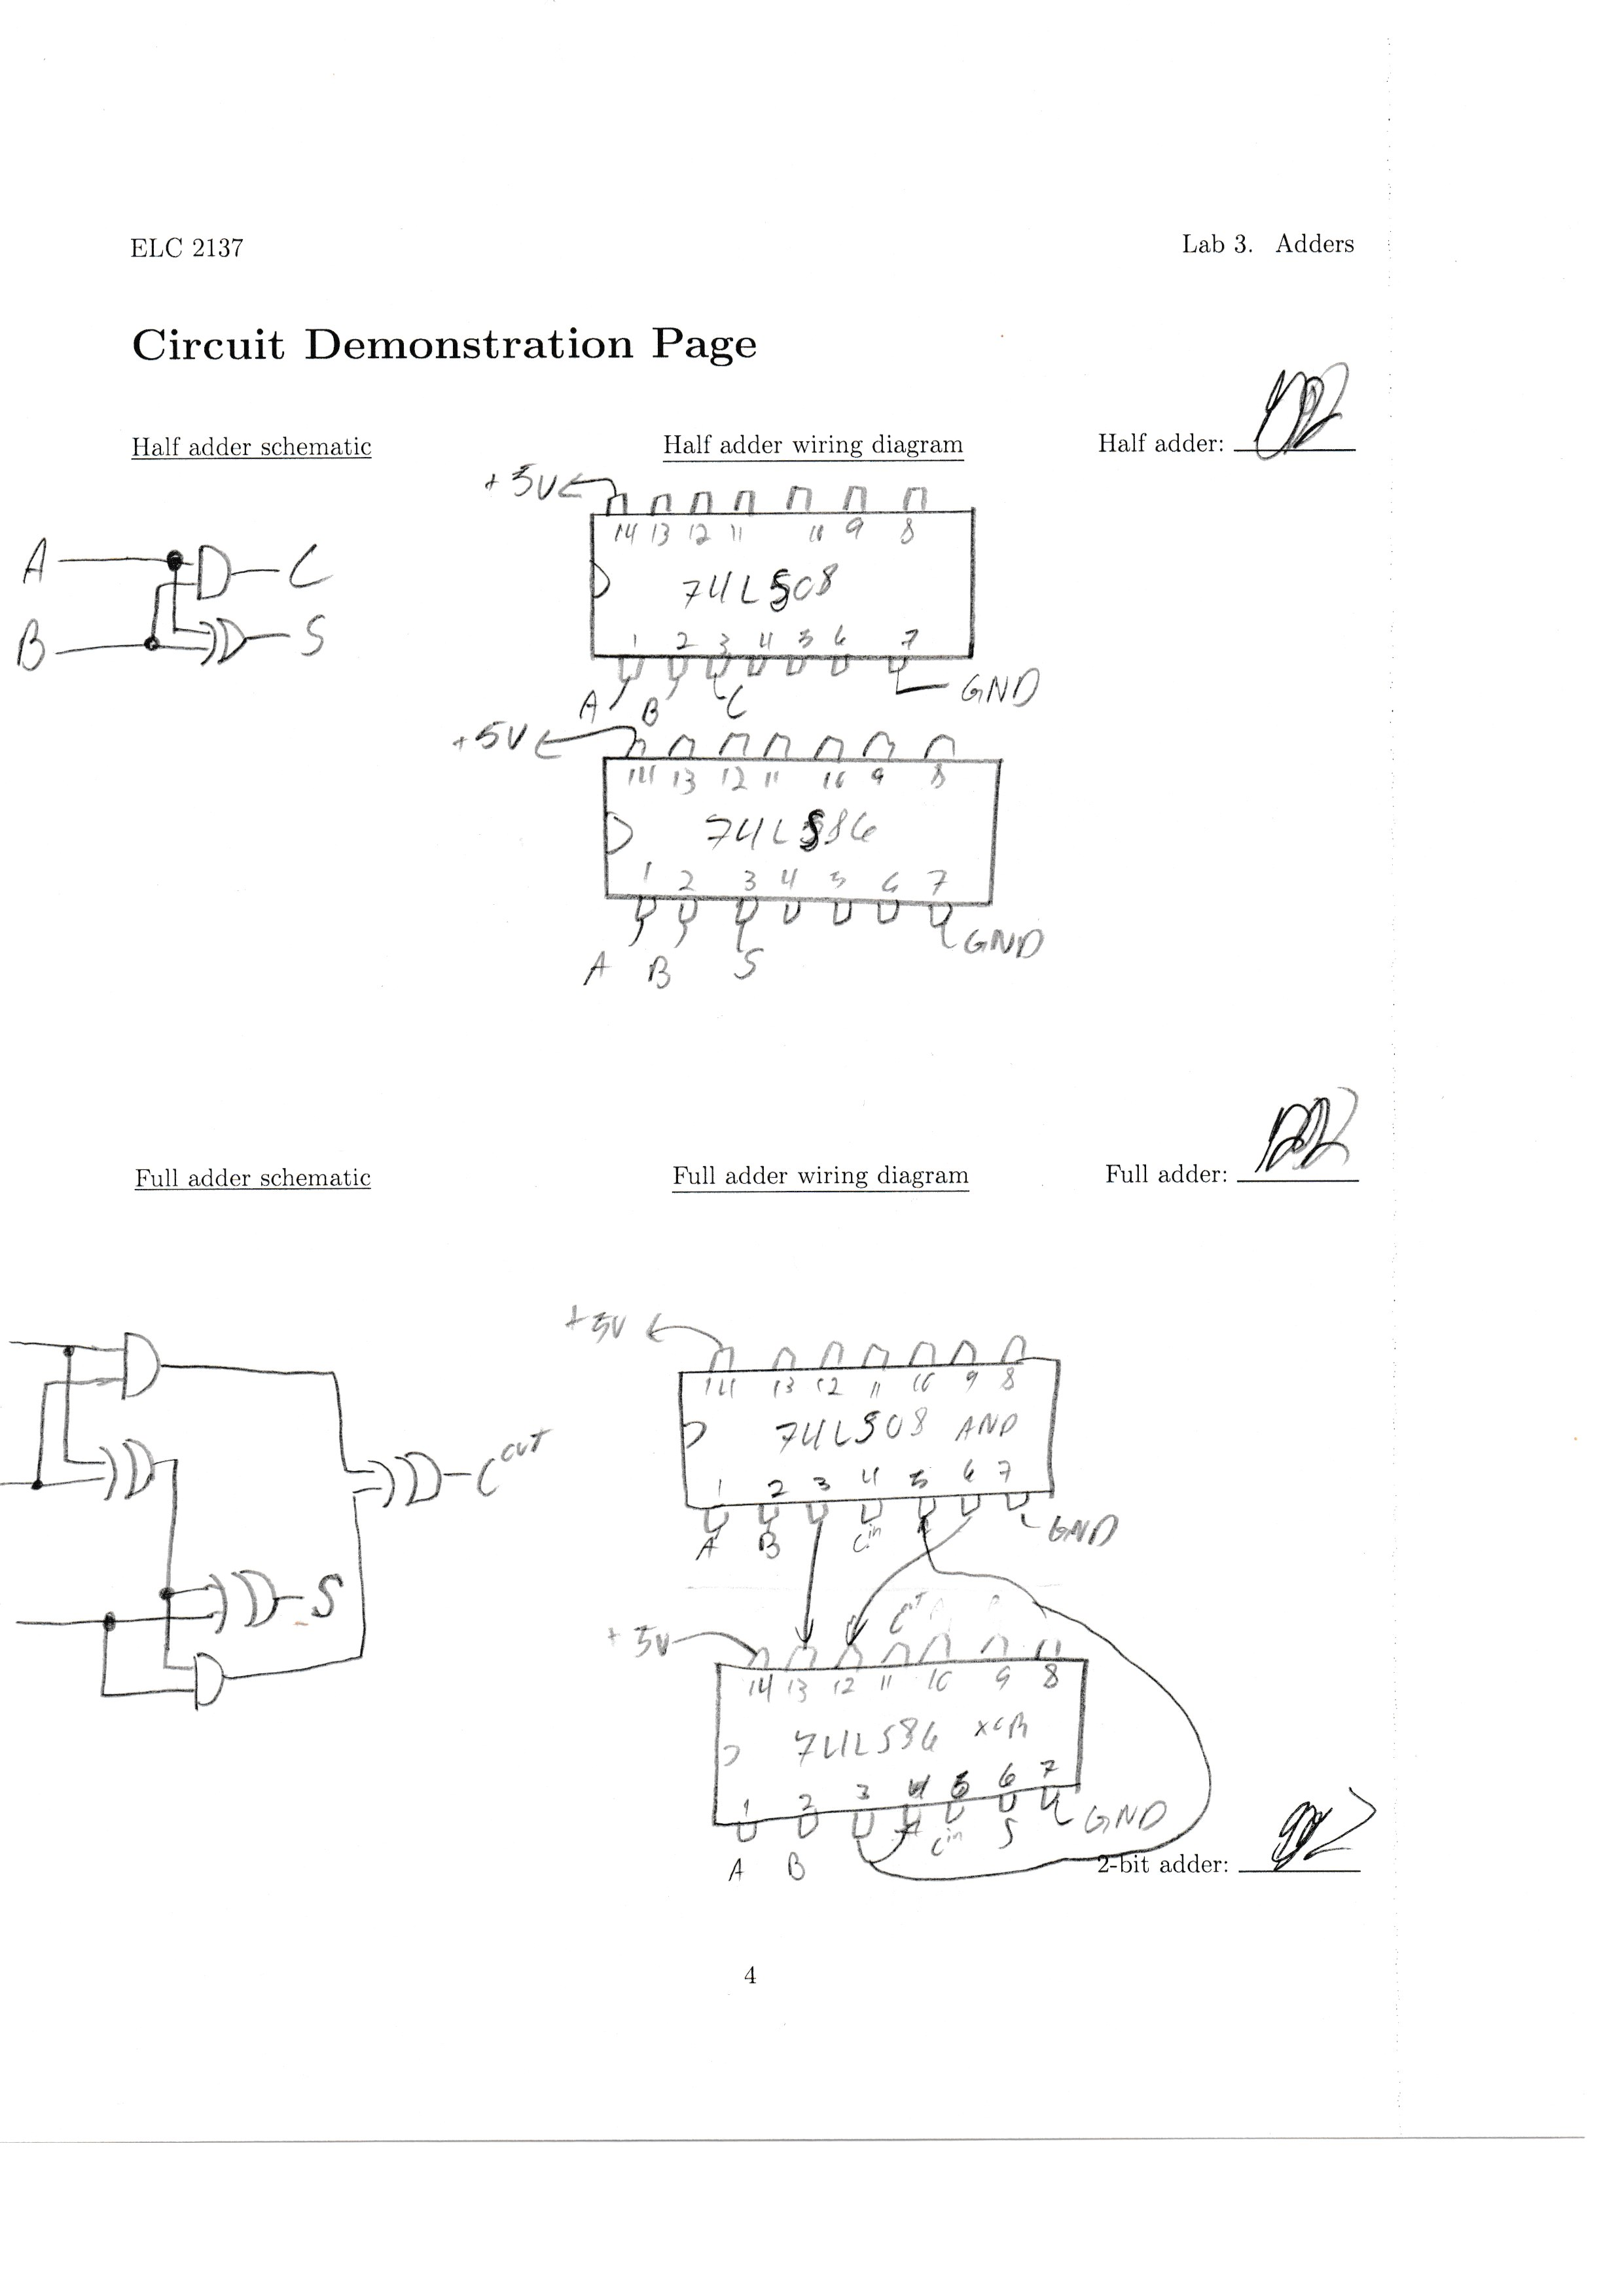 ELC 2137 Lab 3. Adders
Circuit Demonstration Page
Half adder schematic Half adder wiring diagram Half adder:
+5V
14 13 12 11 10 9 8
A C
74LS08
B S
1 2 3 4 5 6 7
A B C GND
+5V
14 13 12 11 10 9 8
74LS86
1 2 3 4 5 6 7
GND
A B S
Full adder schematic Full adder wiring diagram Full adder:
+5V
14 13 12 11 10 9 8
74LS08 AND
Cout
1 2 3 4 5 6 7
A B Cin GND
S
+5V
14 13 12 11 10 9 8
74LS86 XOR
1 2 3 4 5 6 7
A B Cin S GND
2-bit adder:
4